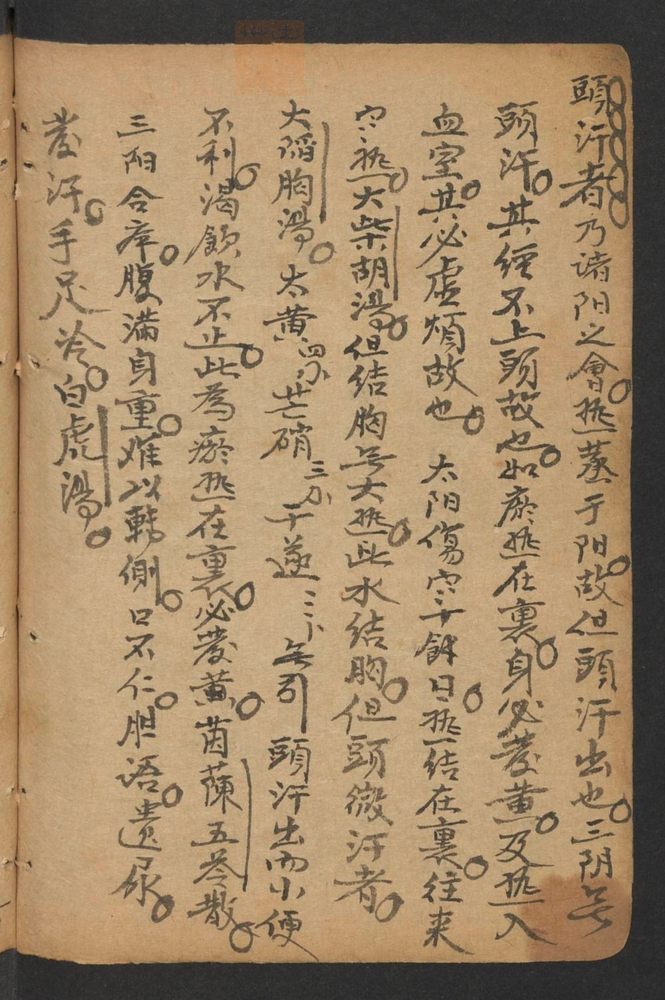 頭汗者乃諸阳之會热蒸于阳故但頭汗出也三阴無
頭汗其经不上頭故也如瘀热在裏身必發黄及热入
血室其必虚煩故也 太阳傷寒十餘日热结在裏往来
寒热大柴胡湯但结胸無大热此水结胸但頭微汗者
大陷胸湯 大黄四 芒硝三 干遂三 無引 頭汗出而小便
不利渴飲水不止此為瘀热在裏必發黄茵蔯五苓散
三阳合病腹满身重难以轉側口不仁 语遗尿
發汗手足冷白虎湯